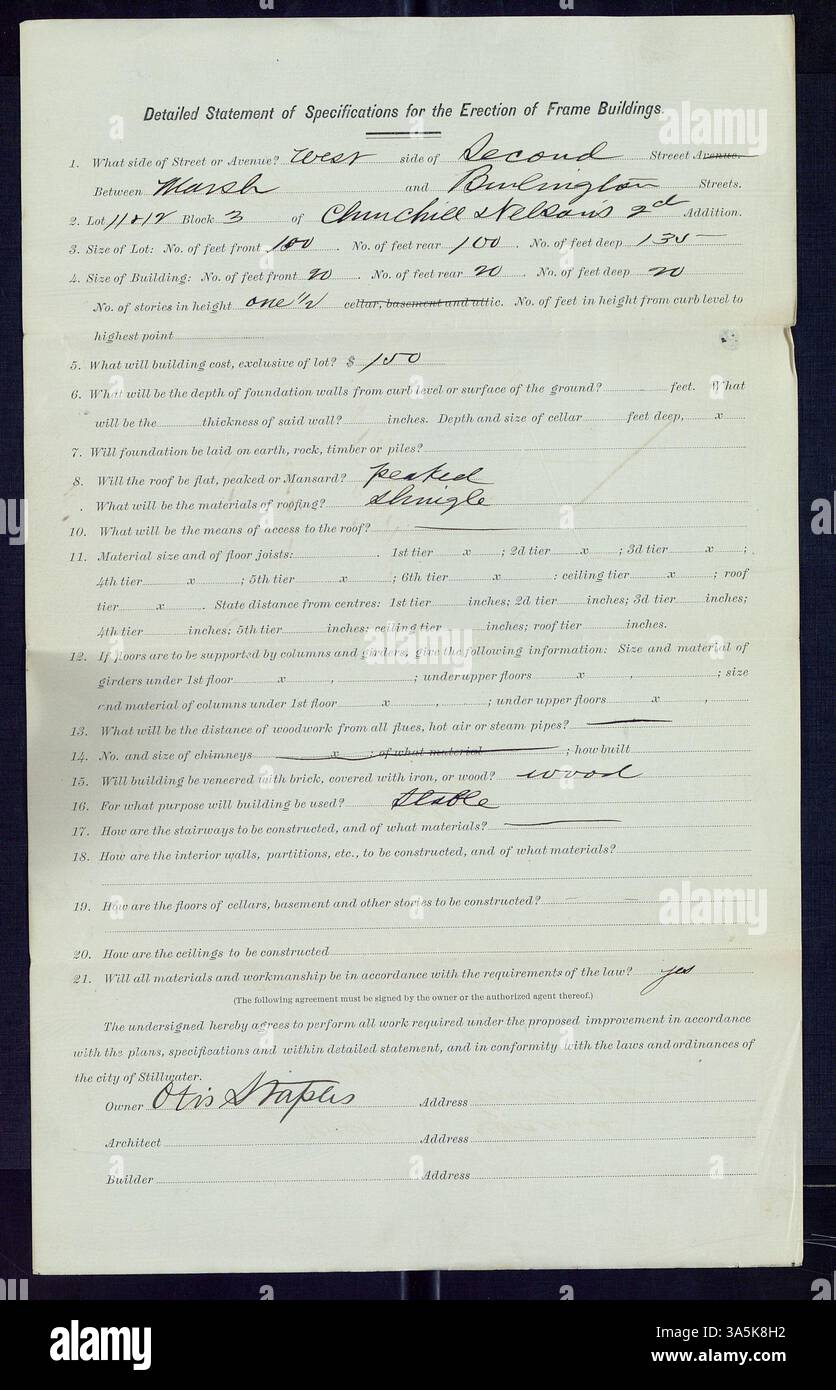 Detailed Statement of Specifications for the Erection of Frame Buildings.
1. What side of Street or Avenue? West side of Second Streeet Avenue.
Between Marsh and Burlington Streets.
2. Lot 11 & 12 Block 3 of Churchill Nelson's 2d Addition.
3. Size of Lot: No. of feet front 100. No. of feet rear 100. No. of feet deep 135
4. Size of Building: No. of feet front 20. No. of feet rear 20. No. of feet deep 20
No. of stories in height one 1/2 cellar, basement and attic. No. of feet in height from curb level to
highest point
5. What will building cost, exclusive of lot? $ 150
6. What will be the depth of foundation walls from curb level or surface of the ground? feet. What
will be the thickness of said wall? inches. Depth and size of cellar feet deep, x
7. Will foundation be laid on earth, rock, timber or piles?
8. Will the roof be flat, peaked or Mansard? peaked
. What will be the materials of roofing? Shingle
10. What will be the means of access to the roof? —
11. Material size and of floor joists: . 1st tier x ; 2d tier x ; 3d tier x ;
4th tier x ; 5th tier x ; 6th tier x : ceiling tier x ; roof
tier x . State distance from centres: 1st tier inches; 2d tier inches; 3d tier inches;
4th tier inches; 5th tier inches; ceiling tier inches; roof tier inches.
12. If floors are to be supported by columns and girders, give the following information: Size and material of
girders under 1st floor x , ; under upper floors x , ; size
and material of columns under 1st floor x , ; under upper floors x ,
13. What will be the distance of woodwork from all flues, hot air or steam pipes? —
14. No. and size of chimneys x ; of what material ; how built
15. Will building be veneered with brick, covered with iron, or wood? wood
16. For what purpose will building be used? Stable
17. How are the stairways to be constructed, and of what materials? —
18. How are the interior walls, partitions, etc., to be constructed, and of what materials?
19. How are the floors of cellars, basement and other stories to be constructed?
20. How are the ceilings to be constructed
21. Will all materials and workmanship be in accordance with the requirements of the law? yes
(The following agreement must be signed by the owner or the authorized agent thereof.)
The undersigned hereby agrees to perform all work required under the proposed improvement in accordance
with the plans, specifications and within detailed statement, and in conformity with the laws and ordinances of
the city of Stillwater.
Owner Otis Staples Address
Architect Address
Builder Address
alamy
Image ID: 3A5K8H2
www.alamy.com